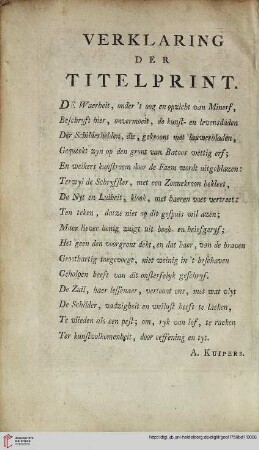 VERKLARING
DER
TITELPRINT.
De Waerheit, onder 't oog en opzicht van Minerf,
Beschryft hier, onvermoeit, de kunst- en levensdaden
Der Schilderhelden, die, gekroont met lauwerbladen,
Gequeekt zyn op den gront van Batoos wettig erf;
En welkers kunstroem door de Faem wordt uitgeblazen:
Terwyl de Schryfster, met een Zonnekroon bekleet,
De Nyt en Luiheit, kloek, met haeren voet vertreet:
Ten teken, datze niet op dit gespuis wil azen;
Maer liever honig zuigt uit boek- en briefsgeryf;
Het geen den voorgront dekt, en dat haer, van de braven
Groothartig toegevoegt, niet weinig in 't beschaven
Geholpen heeft van dit onsterfelyk geschryf.
De Zuil, haer lessenaer, vertoont ons, met wat vlyt
De Schilder, vadzigheit en wellust heeft te laken,
Te vlieden als een pest; om, ryk van lof, te raken
Tot kunstvolkomenheit, door oeffening en tyt.
A. KUIPERS.